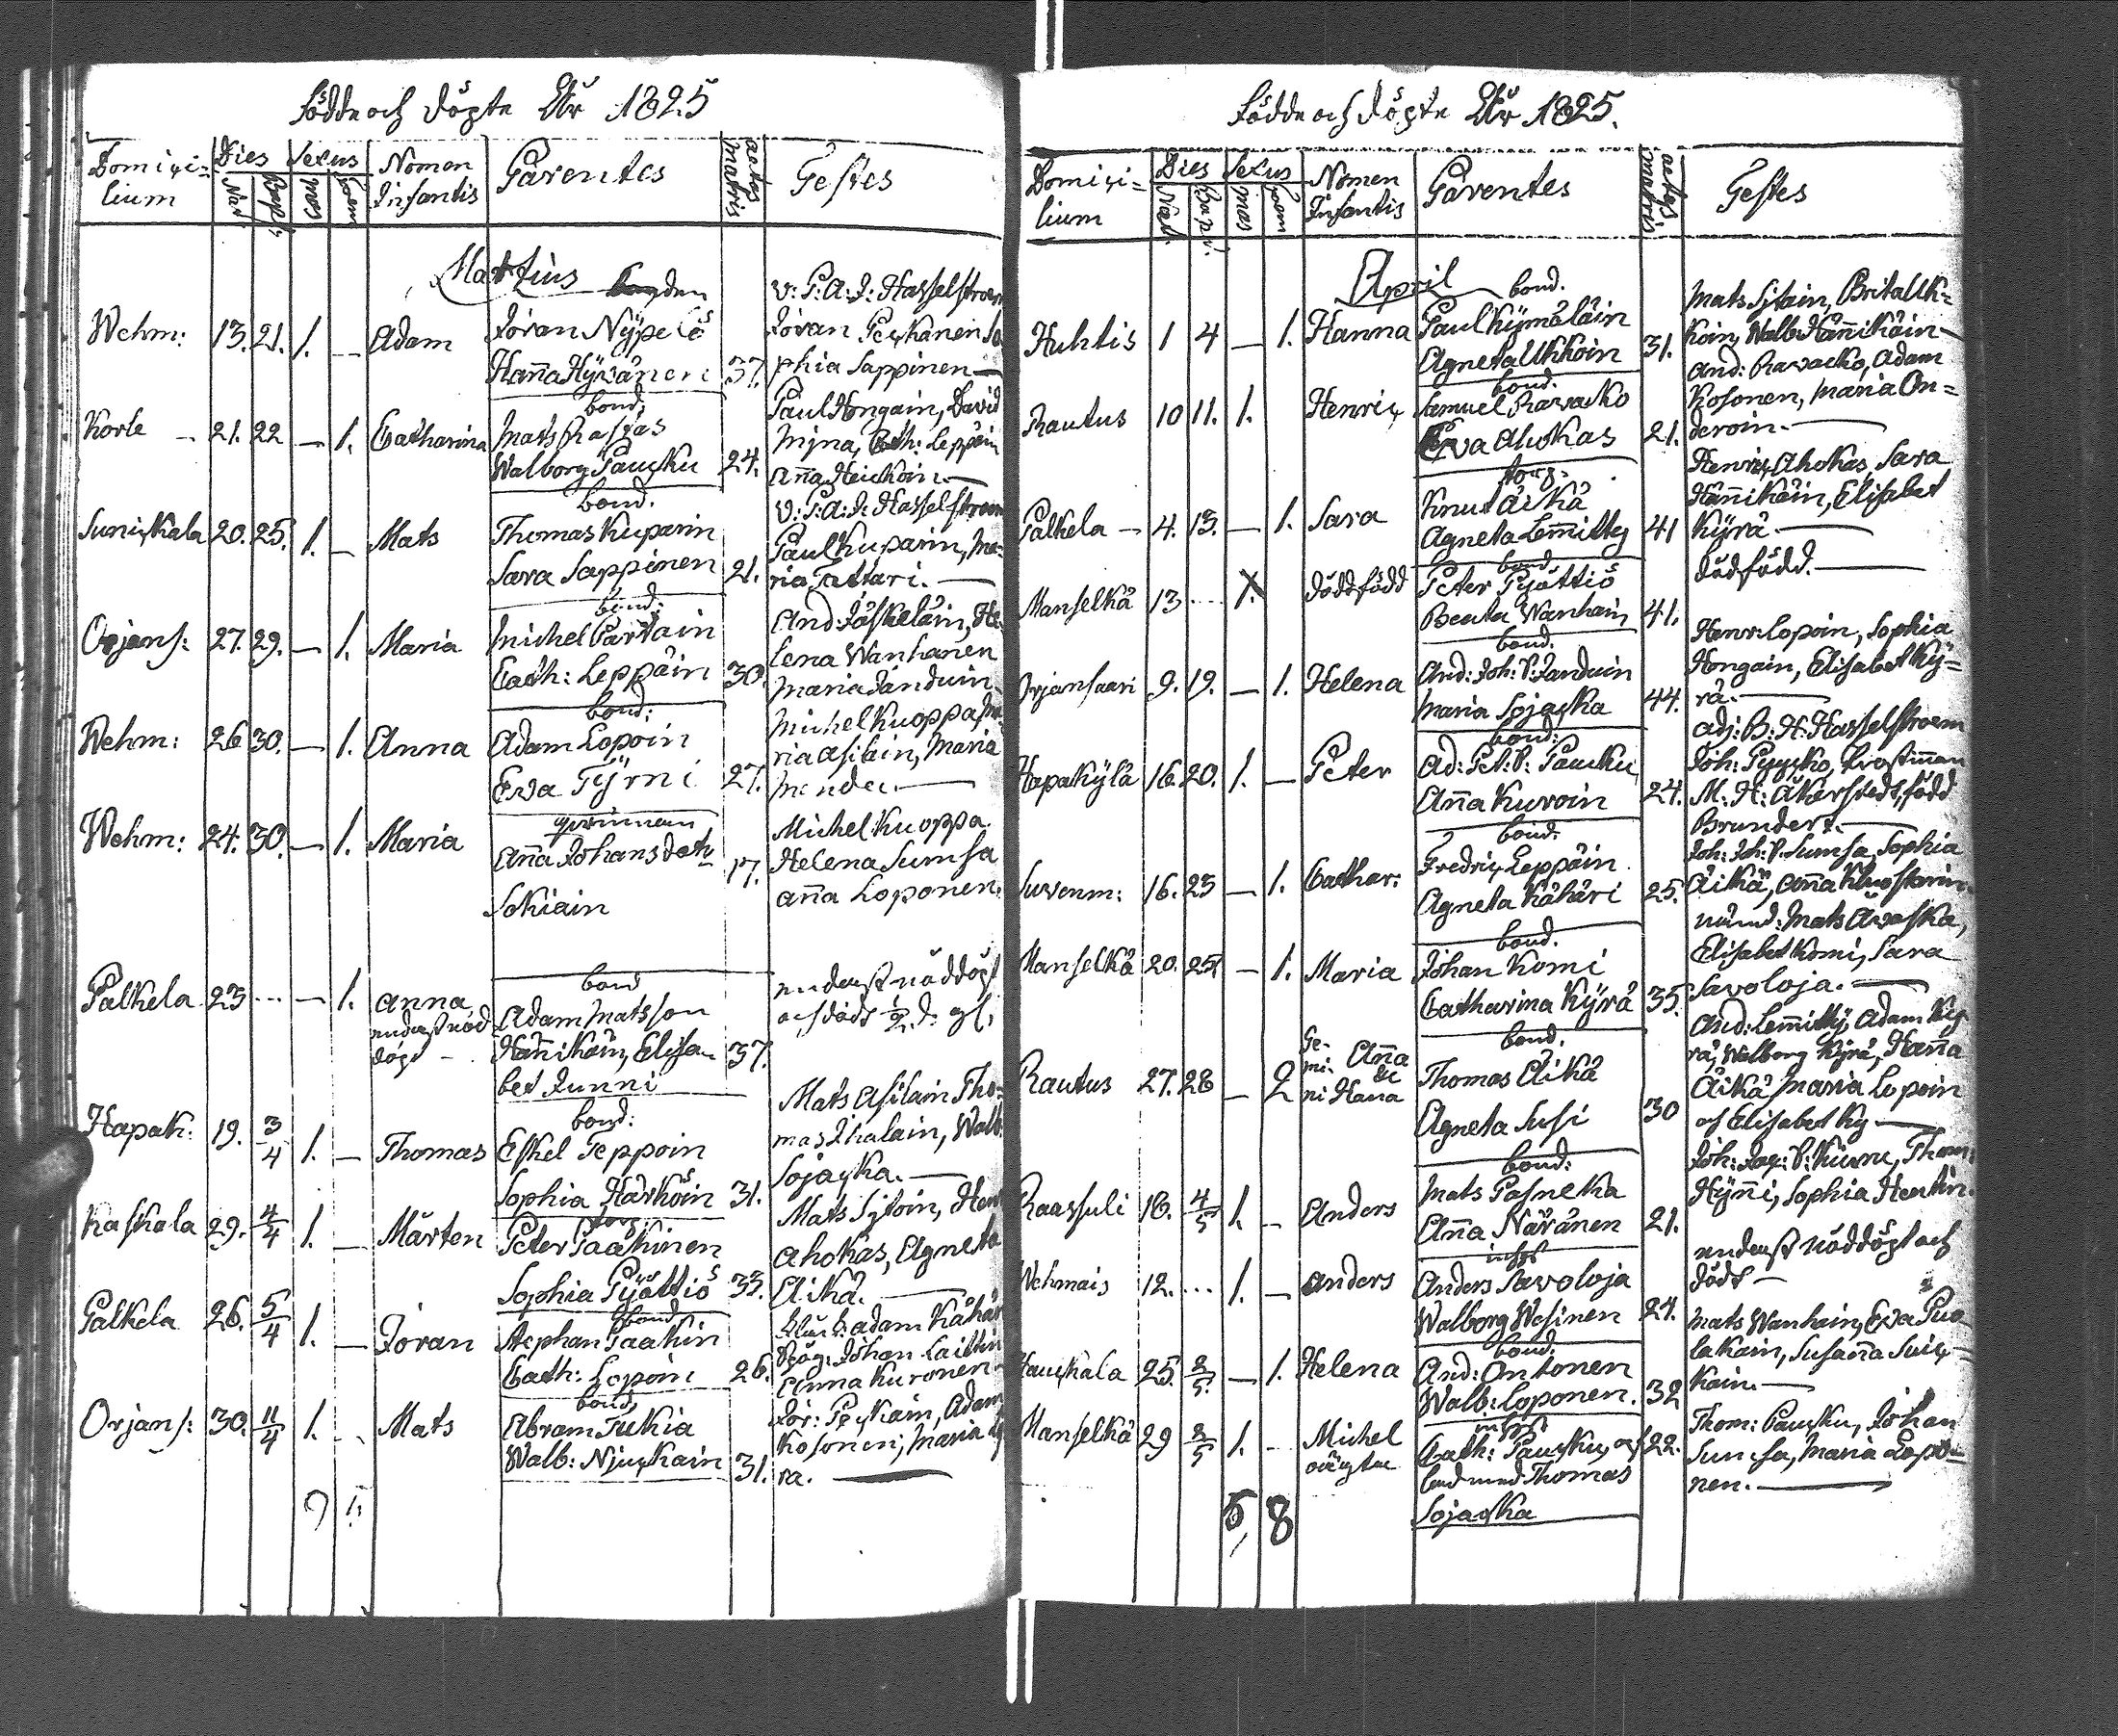 Födde och döpte År 1825
Domici=
lium
Dies
Nat.
Bapt.
Sexus
mas
foem
Nomen
Infantis
Parentes
aetas
matris
Testes
Martius
Wehm: 13. 21. 1. — Adam
Jöran Nÿpelö
Hanna Hÿvänen 37.
v: P: A: J: Hasselstroem
Jöran Peckanen So
phia Sappinen —
Korle — 21. 22 — 1. Catharina
bond.
Mats Rastas
Walborg Paucku 24.
Paul Hongain, David
Mÿna, Cath: Leppäin
Anna Heickoin —
Sunickala 20. 25. 1. — Mats
bond.
Thomas Kuparin
Sara Sappinen 21.
v: P: A: J: Hasselstroem
Paul Kuparin, Ma-
ria Tattari. —
Orjans: 27. 29. — 1. Maria
bond:
Michel Partain
Cath: Leppäin 30.
And: Jäskeläin, He
lena Wanhanen
Maria Janduin
Wehm: 26 30. — 1. Anna
bond:
Adam Lopoin
Eva Tÿrni 27.
Michel Kuoppa, Ma
ria Asilain, Maria
—
Wehm: 24. 30. — 1. Maria
Anna Johans dotr
Sokiain 17.
Michel Kuoppa.
Helena Sumsa
Anna Loponen.
Palkela 23 ... — 1. Anna
endast nöd
döpt —
bond
Adam Matsson
Hännikäin, Elisa-
bet Junni 37.
endast nöddöpt
och död
Hapak: 19. 3/4 1. — Thomas
bond:
Eskel Teppoin
Sophia Härköin 31.
Mats Asilain Tho-
mas Ihalain, Walb.
Sojacka. —
Kaskala 29. 4/4 1. — Mårten
torp.
Peter Paakinen
Sophia Pÿöttiö 33.
Mats Sitoin, Hen
Ahokas, Agneta
Äikä. —
Palkela 26. 5/4 1. — Jöran
bond.
Stephan Paakin
Cath: Lopoin 26.
Adam Kähär
Johan Laittin
Anna Kuronen
Orjans: 30. 11/4 1. — Mats
bond.
Abram Tukia
Walb: Njuckain 31.
Jör: Peckain, Adam
Kosonen, Maria
ra. —
9 5
Födde och döpte År 1825.
Domici=
lium
Dies
Nat.
Bapt.
Sexus
mas
foem
Nomen
Infantis
Parentes
aetas
matris
Testes
April
Huhtis 1 4 — 1. Hanna
bond.
Paul Kÿmäläin
Agneta Ukkoin 31.
Mats Sitain, Brita Uk=
koin, Walb: Hännikäin —
Rautus 10 11. 1. Henric
bond.
Samuel Rawasko
Eva Ahokas 21.
And: Rawasko, Adam
Kosonen, Maria On=
deroin. —
Palkela — 4. 13. — 1. Sara
torp.
Knut Äikä
Agneta Lemmitty 41
Henric Ahokas, Sara
Hännikäin, Elisabet
Kÿrä. —
Manselkä 13 ... 1. dödfödd
bond.
Peter Pÿöttiö
Beata Wanhain 41.
dödfödd. —
Orjansaari 9. 19. — 1. Helena
bond.
And: Joh: S: Janduin
Maria Sojacka 44.
Henr: Lopoin, Sophia
Hongain, Elisabet Kÿ=
rä. —
Hapakÿlä 16. 20. 1. — Peter
bond:
Ad: Pet: S: Paucku
Anna Kuroin 24.
adj: B: H: Hasselstroem
Joh: Pyycko,
M: H: Åkerstedt, född
Brundert. —
Suvenm: 16. 23 — 1. Cathar:
bond.
Fredric Leppäin
Agneta Kähäri 25.
Joh: Joh: S. Sumsa, Sophia
Äikä, Anna Kluostarin.
Manselkä 20. 25. — 1. Maria
bond.
Johan Komi
Catharina Kÿrä 35.
Mats Äväskä,
Elisabet Komi, Sara
Savoloja. —
Rautus 27. 28 — 2
Ge-
mi-
ni
Anna
&c
Hana
bond.
Thomas Äikä
Agneta Susi 30
And: Lemmitty, Adam Ky
rä, Walborg Kÿrä, Hanna
Äikä Maria Lopoin
och Elisabet Ky —
Raassuli 18. 4/5 1. — Anders
bond:
Mats Pasneka
Anna Näränen 21.
Joh: Jac: S: Kiuru, Thom:
Hÿnni, Sophia Hentin.
Wehmais 12. ... 1. — Anders
inhys
Anders Savoloja
Walborg Wesinen 24.
endast nöddöpt och
död —
Hauckala 25. 8/5. — 1. Helena
bond.
And: Antonen
Walb: Loponen. 32
Mats Wanhain, Eva Puo
lakain, Susanna Suic=
kain. —
Manselkä 29 8/5 1. — Michel
oäcta
inhys
Cath: Paucku, 22.
Thomas
Sojacka
Thom: Paucku, Johan
Sumsa, Maria Lopo=
nen. —
6 8